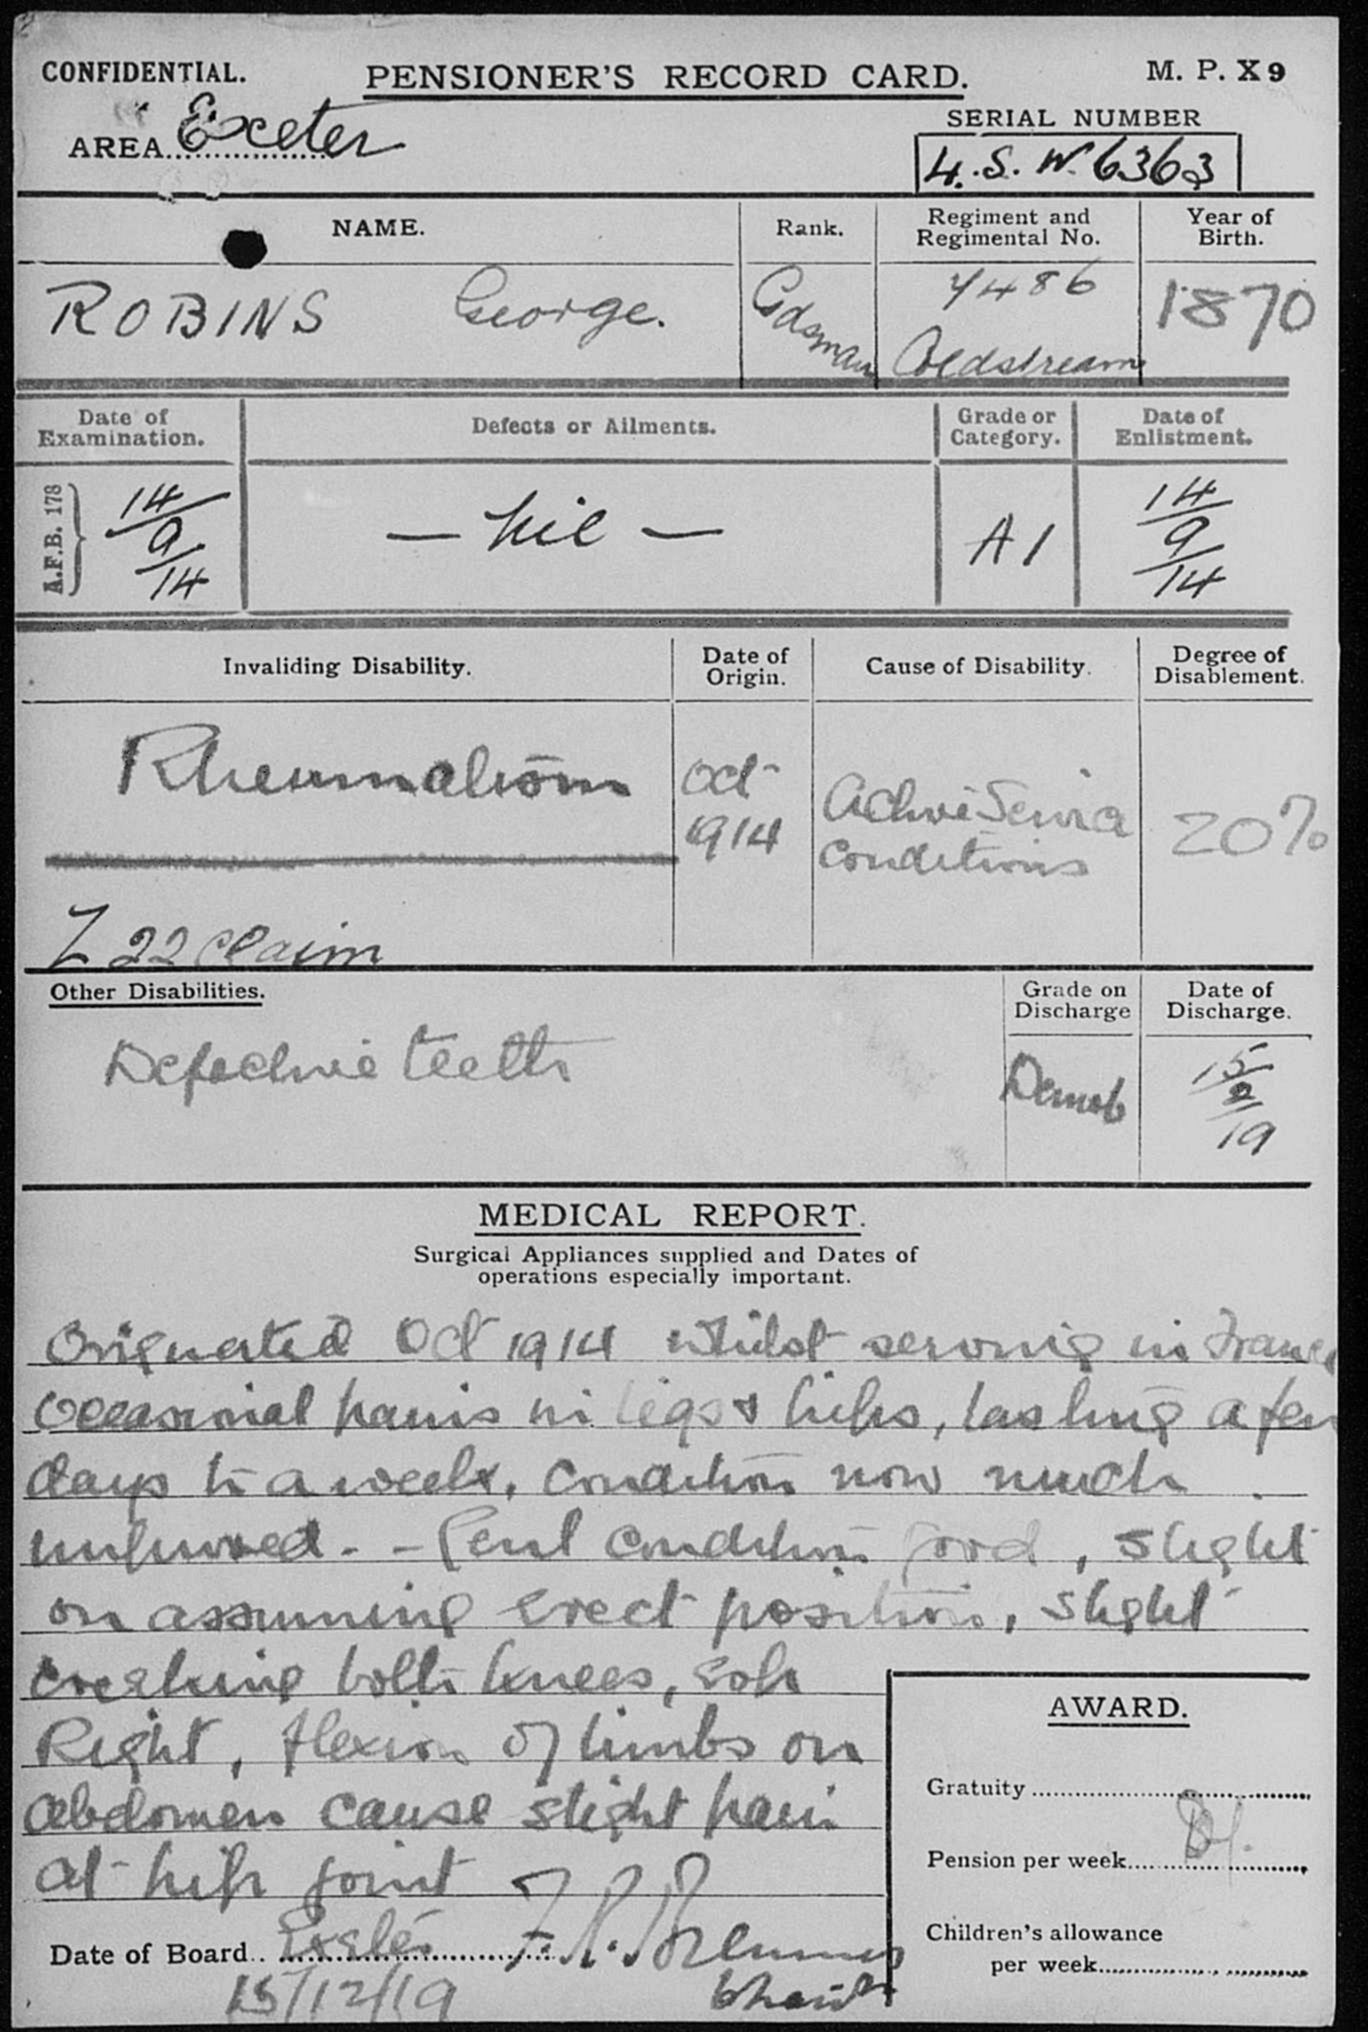 CONFIDENTIAL. PENSIONER'S RECORD CARD. M. P. X 9
AREA Exeter
SERIAL NUMBER
4. S. W. 6363
NAME. Rank. Regiment and Regimental No. Year of Birth.
ROBINS George. Gdsman 7486 Coldstream 1870
Date of Examination. Defects or Ailments. Grade or Category. Date of Enlistment.
A.F.B. 178 14/9/14 — Nil — A1 14/9/14
Invaliding Disability. Date of Origin. Cause of Disability. Degree of Disablement.
Rheumatism Oct 1914 Active Service Conditions 20%
Z 22 claim
Other Disabilities. Grade on Discharge Date of Discharge.
Defective teeth Demob 15/2/19
MEDICAL REPORT.
Surgical Appliances supplied and Dates of
operations especially important.
Originated Oct 1914 whilst serving in France
Occasional pains in legs & hips, lasting a few
days to a week, condition now much
improved. - - Genl condition good, slight
on assuming erect position, slight
creaking both knees, esp
Right, flexion of limbs on
abdomen cause slight pain
at hip joint
Date of Board.. Exeter
15/12/19
AWARD.
Gratuity
Pension per week
Children's allowance
per week